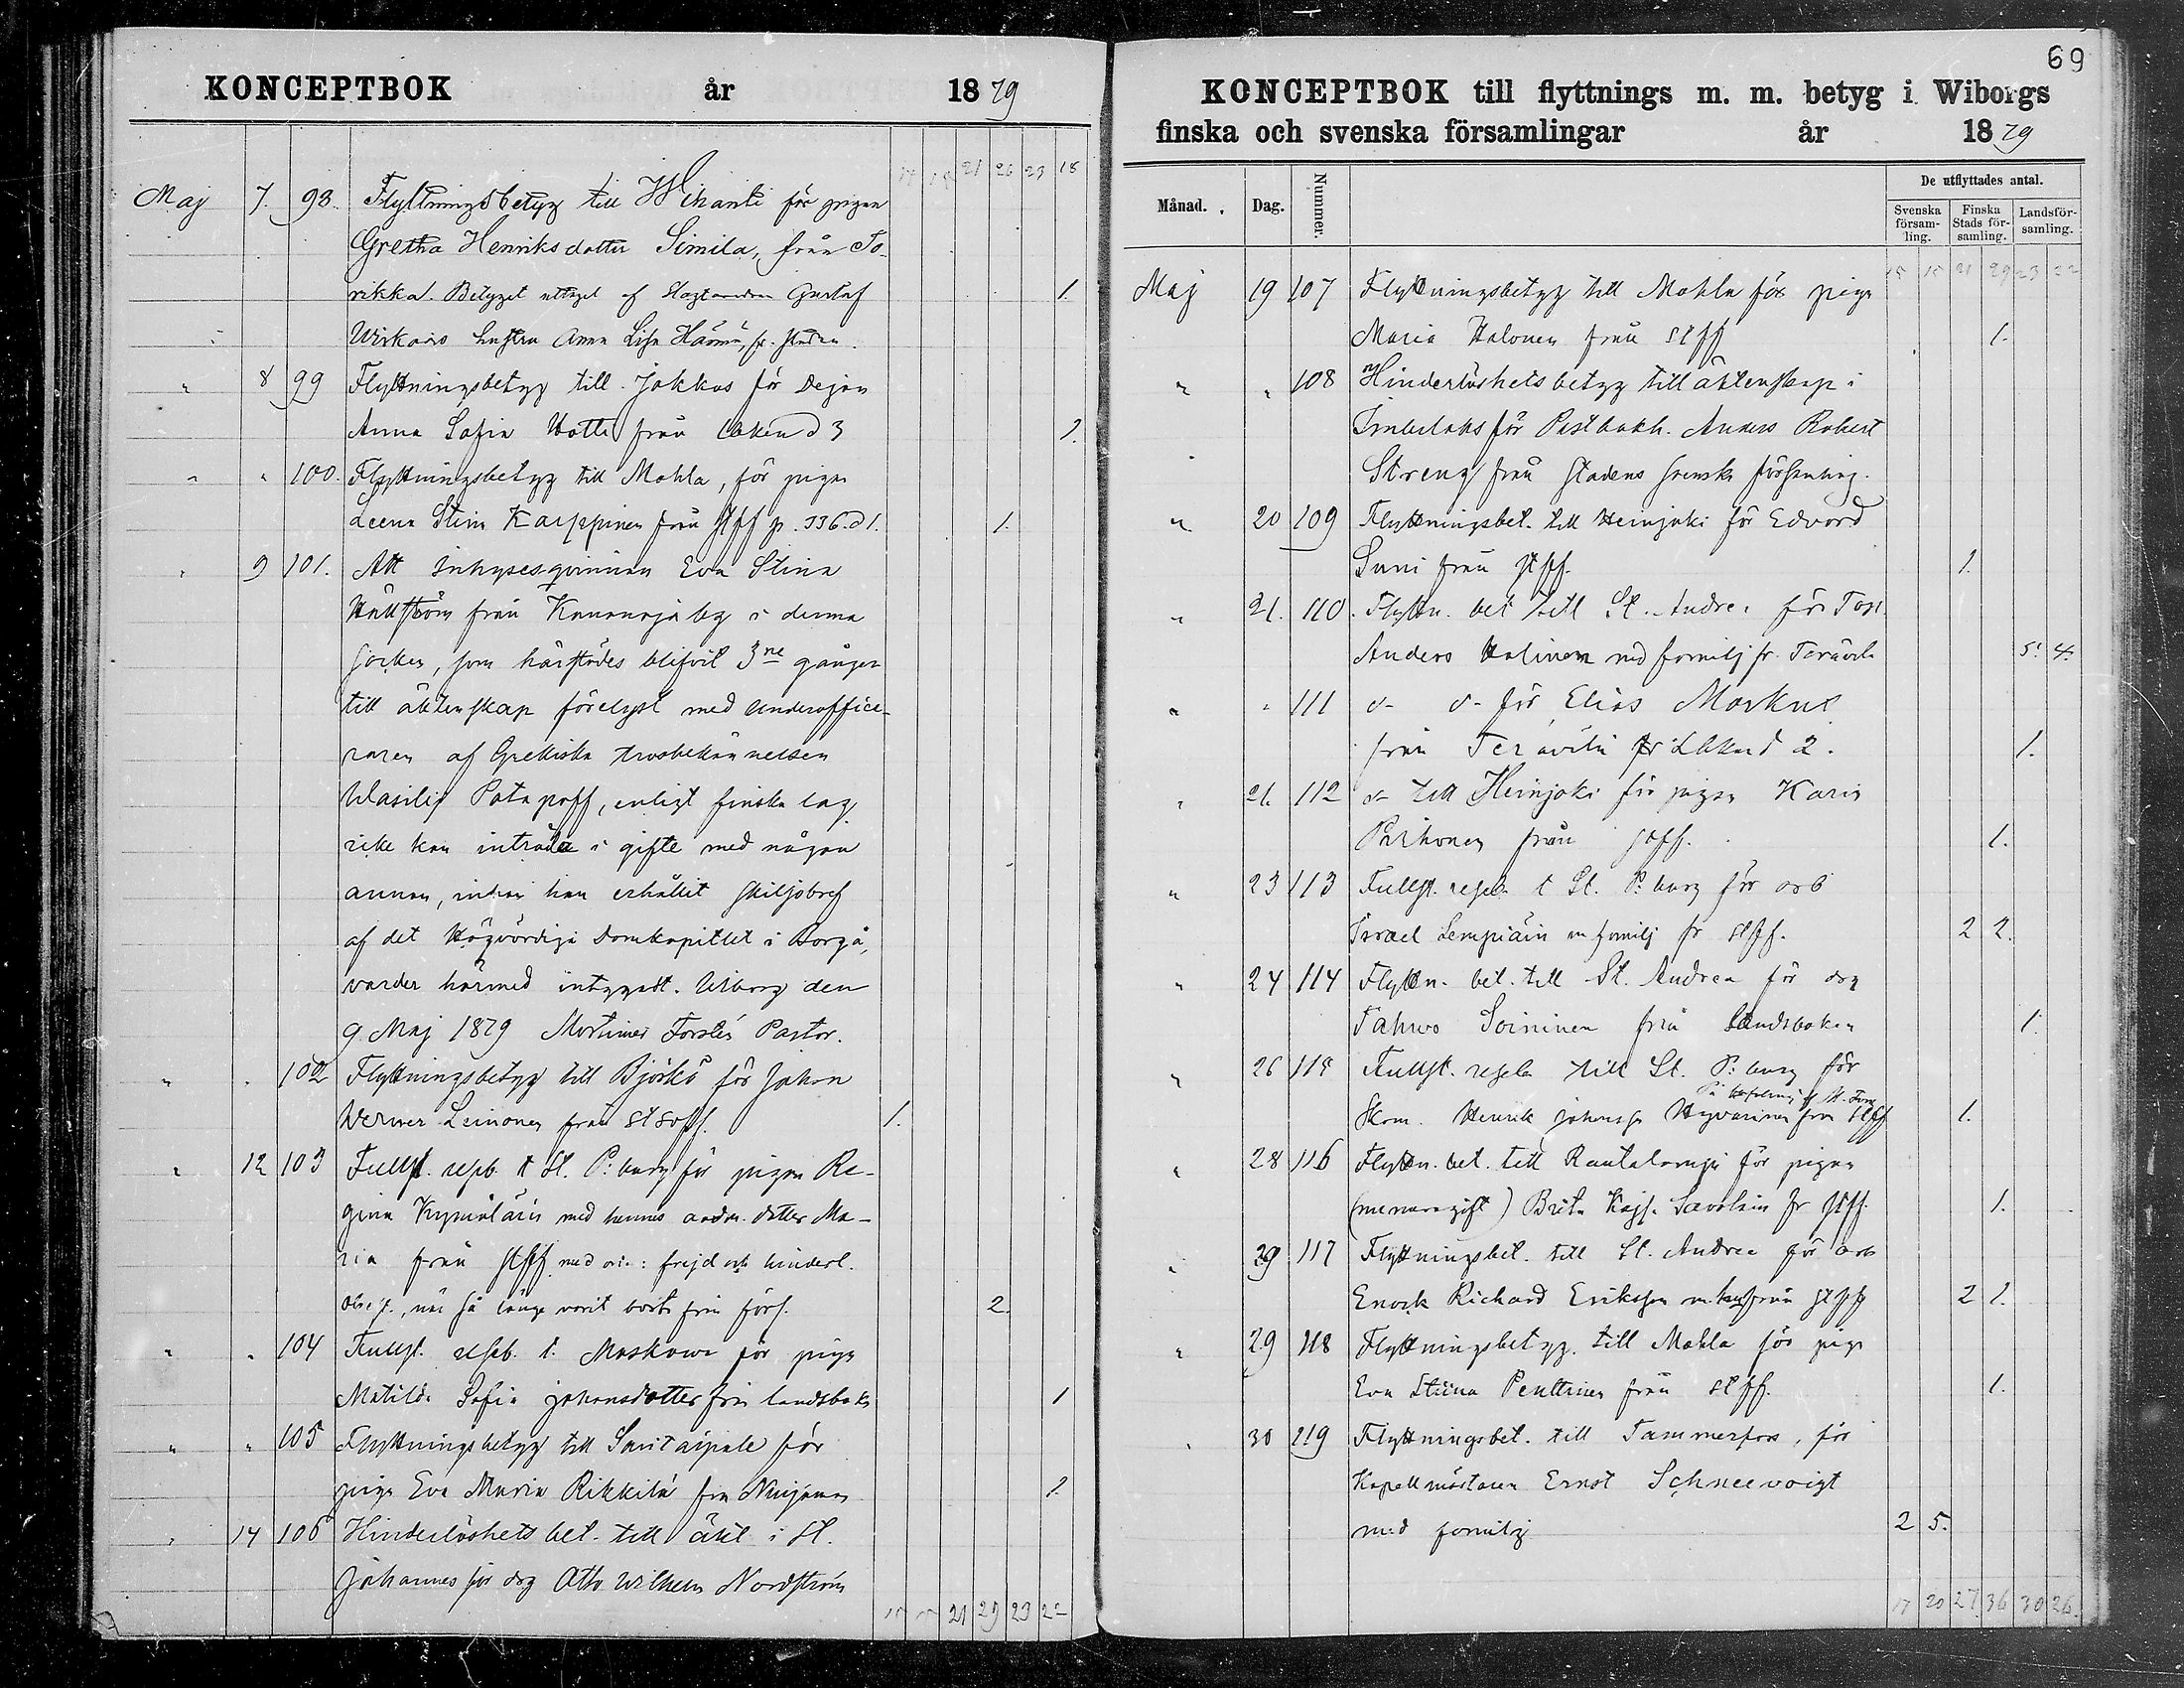 KONCEPTBOK år 1879
17 15 21 26 23 18
Maj 7. 98. Flyttningsbetyg till Wihanti för pigan
Gretha Henriksdotter Simila, från To-
rikka. Betyget uttaget af Gustaf 1.
hustru Anna Lisa fr. staden.
" 8 99 Flyttningsbetyg till Jokkas för Dejan
Anna Sofia från d 3 1.
" " 100. Flyttningsbetyg till Mohla, för pigan
Leena Stina Karppinen från stff p. 336. d 1. 1.
" 9 101. Att inhysesqvinnan Eva Stina
Hällström från i denna
socken, som härstädes blifvit 3ne gånger
till äktenskap förelyst med underoffice-
raren af Grekiska trosbekännelsen
Wasilij Potapoff, enligt finska lag
icke kan inträda i gifte med någon
annan, innan hon erhållit skiljobref
af det Högvördiga Domkapitlet i Borgå,
varder härmed intygadt. Wiborg den
9 Maj 1879 Mortimer Forstén Pastor.
" " 102 Flyttningsbetyg till Björkö för Johan
Werner Leinonen från 1.
" 12 103 Fullst. resb. t St. P:burg för pigan Re-
gina Kymäläin med hennes dotter Ma-
ria från stff med frejd och hinderl.
när så länge varit borta från förs. 2.
" " 104 Fullst. resb. t. Moskowa för piga
Matilda Sofia Johansdotter från landsboks 1
" " 105 Flyttningsbetyg till Savitaipale för
piga Eva Maria Rikkilä från 1.
" 14 106 Hinderlöshets bet. till äkt. i St.
Johannes för drg Otto Wilhelm Nordström
21 29 23 22
69
KONCEPTBOK till flyttnings m. m. betyg i Wiborgs
finska och svenska församlingar år 1879
Månad. Dag. Nummer. De utflyttades antal.
Svenska församling. Finska Stads församling. Landsförsamling.
15 15 21 29 23 22
Maj 19 107 Flyttningsbetyg till Mohla för piga
Maria Halonen från stff 1.
" " 108 Hinderlöshetsbetyg till äktenskap i
för Postbokh. Anders Robert
Streng från stadens svenska församling.
" 20 109 Flyttningsbet. till Heinjoki för Edvard
Suni från stff. 1.
" 21. 110. Flyttn. bet till St. Andrea för
Anders Halinen med familj fr. Terävälä 5. 4.
" " 111 d- d- för Elias Markus
från Teravälä d 2. 1.
" 21. 112 d- till Heinjoki för pigan Karin
Parhonen från stff. 1.
" 23 113 Fullst. resb. t St. P:burg för arb
Israel Lempiäin m familj fr stff. 2 2.
" 24 114 Flyttn. bet. till St. Andrea för drg
Tahwo Soininen från Landsboken 1.
" 26 115 Fullst. resb. till St. P:burg för
Skom. Henrik Johansson Hyvärinen från stff 1.
" 28 116 Flyttn. bet. till Rautalampi för pigan
Brita Kajsa Savolain fr stff. 1.
" 29 117 Flyttningsbet. till St. Andrea för arb
Enock Richard Eriksson m. från stff 2 1.
" 29 118 Flyttningsbetyg. till Mohla för piga
Eva Stiina Penttinen från stff. 1.
" 30 119 Flyttningsbet. till Tammerfors, för
Kapellmästaren Ernst Schneevoigt
med familj 2 5.
17 20 27 36 30 26.